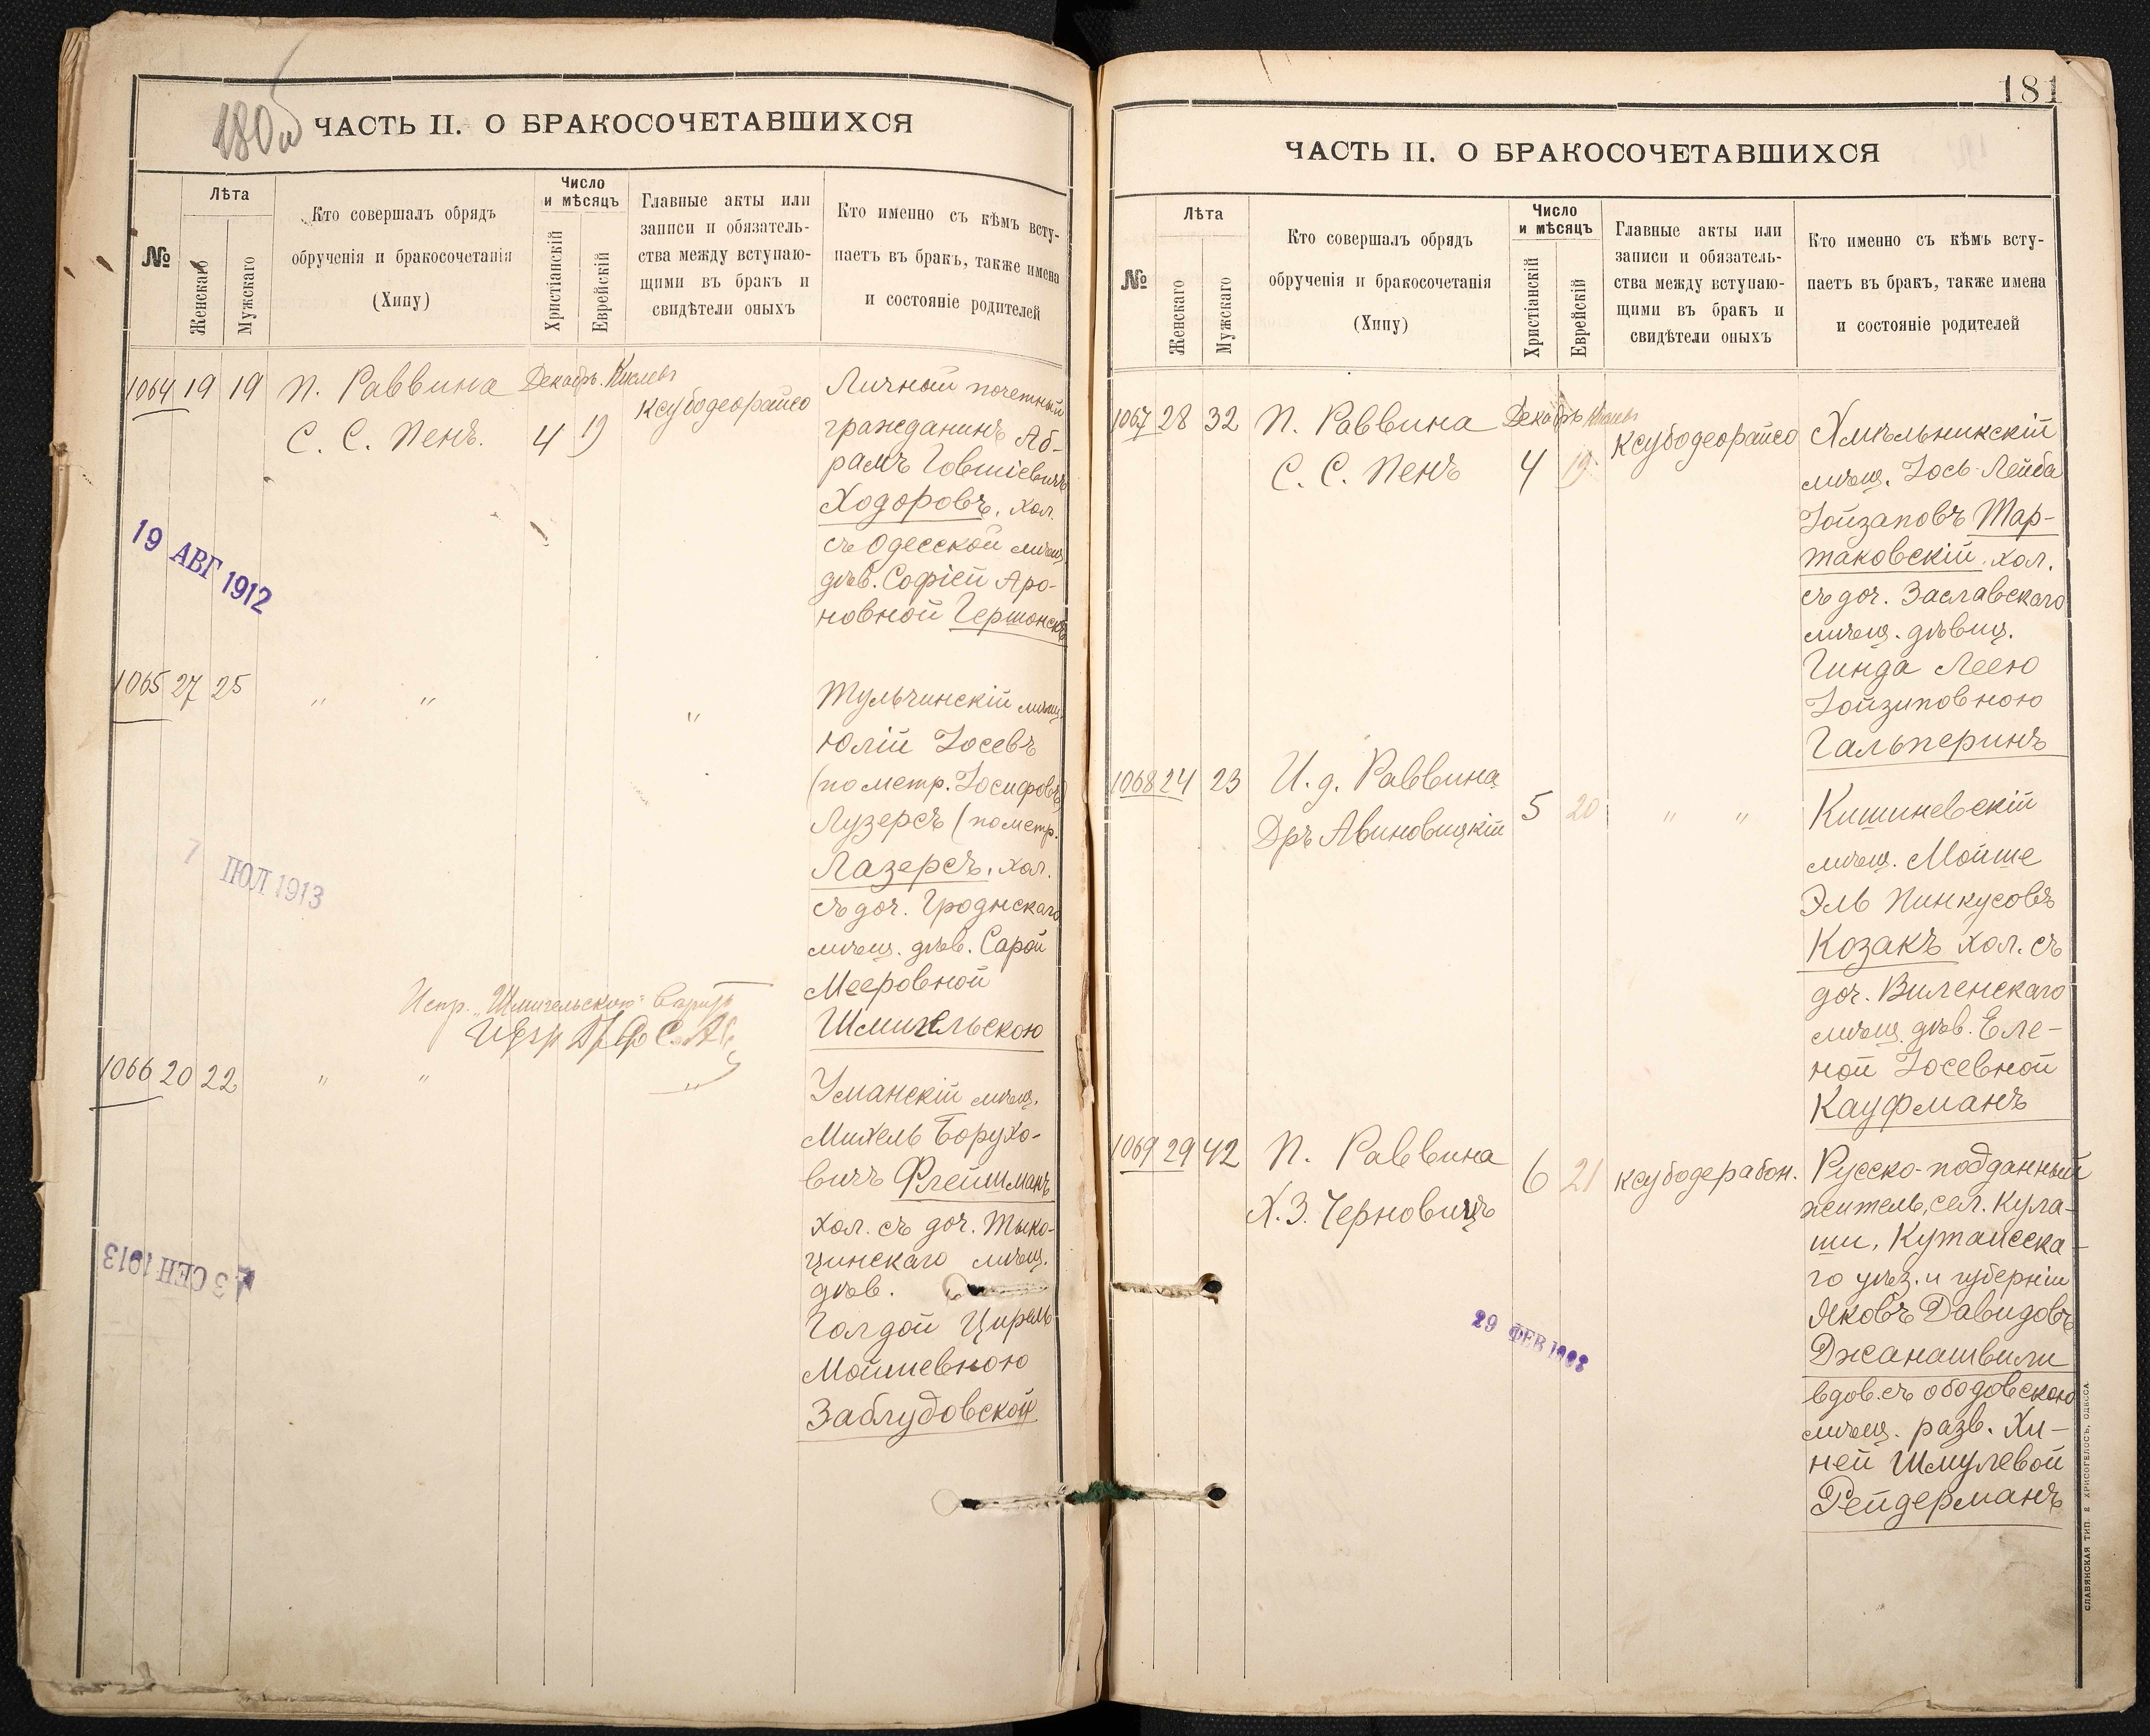 180 об
ЧАСТЬ II. О БРАКОСОЧЕТАВШИХСЯ
№
Лѣта
Женскаго
Мужскаго
Кто совершалъ обрядъ
обрученія и бракосочетанія
(Хипу)
Число
и мѣсяцъ
Христіанскій
Еврейскій
Главные акты или
записи и обязатель-
ства между вступаю-
щими въ бракъ и
свидѣтели оныхъ
Кто именно съ кѣмъ всту-
паетъ въ бракъ, также имена
и состояніе родителей
1064 19 19 П. Раввина Декабр. Кислевъ ксубодеорайсо
С. С. Пенъ. 4 19
Личный почетный
гражданинъ Аб-
рамъ Говшіевичъ
Ходоровъ, хол.
съ Одесской мѣщ.
дѣв. Софіей Аро-
новной Гершонскъ
19 АВГ 1912
1065 27 25 " " "
Тульчинскій мѣщ.
Юлій Іосевъ
(по метр. Іосифовъ)
Лузерсъ (по метр.
Лазерсъ, хол.
съ доч. Гродненскаго
мѣщ. дѣв. Сарой
Мееровной
Шмигельскою
7 ІЮЛ 1913
Испр. „Шмигельскою"
1066 20 22 " " "
Уманскій мѣщ.
Михель Борухо-
вичъ Флейшманъ
хол. съ доч. Тыко-
цинскаго мѣщ.
дѣв.
Голдой Цирель
Мойшевною
Заблудовской
3 СЕН 1913
181
ЧАСТЬ II. О БРАКОСОЧЕТАВШИХСЯ
№
Лѣта
Женскаго
Мужскаго
Кто совершалъ обрядъ
обрученія и бракосочетанія
(Хипу)
Число
и мѣсяцъ
Христіанскій
Еврейскій
Главные акты или
записи и обязатель-
ства между вступаю-
щими въ бракъ и
свидѣтели оныхъ
Кто именно съ кѣмъ всту-
паетъ въ бракъ, также имена
и состояніе родителей
1067 28 32 П. Раввина Декабрь Кислевъ ксубодеорайсо
С. С. Пенъ 4 19
Хмѣльникскій
мѣщ. Іось-Лейба
Іойзаповъ Тар-
таковскій, хол.
съ доч. Заславскаго
мѣщ. дѣвиц.
Гинда Леею
Іойзиповною
Гальперинъ
1068 24 23 И. д. Раввина 5 20 " "
Дръ Авиновицкій
Кишиневскій
мѣщ. Мойше
Эль Пинкусовъ
Козакъ хол. съ
доч. Виленскаго
мѣщ. дѣв. Еле-
ной Іосевной
Кауфманъ
1069 29 42 П. Раввина 6 21 ксубодерабон.
Х. З. Черновицъ
Русско-подданный
житель, сел. Кула-
ши, Кутаисска-
го уѣз. и губерніи
Яковъ Давидовъ
Джанашвили
вдов. съ ободовскою
мѣщ. разв. Хи-
ней Шмулевой
Рейдерманъ
29 ФЕВ
СЛАВЯНСКАЯ ТИП. Е ХРИСОГЕЛОСЪ, ОДЕССА